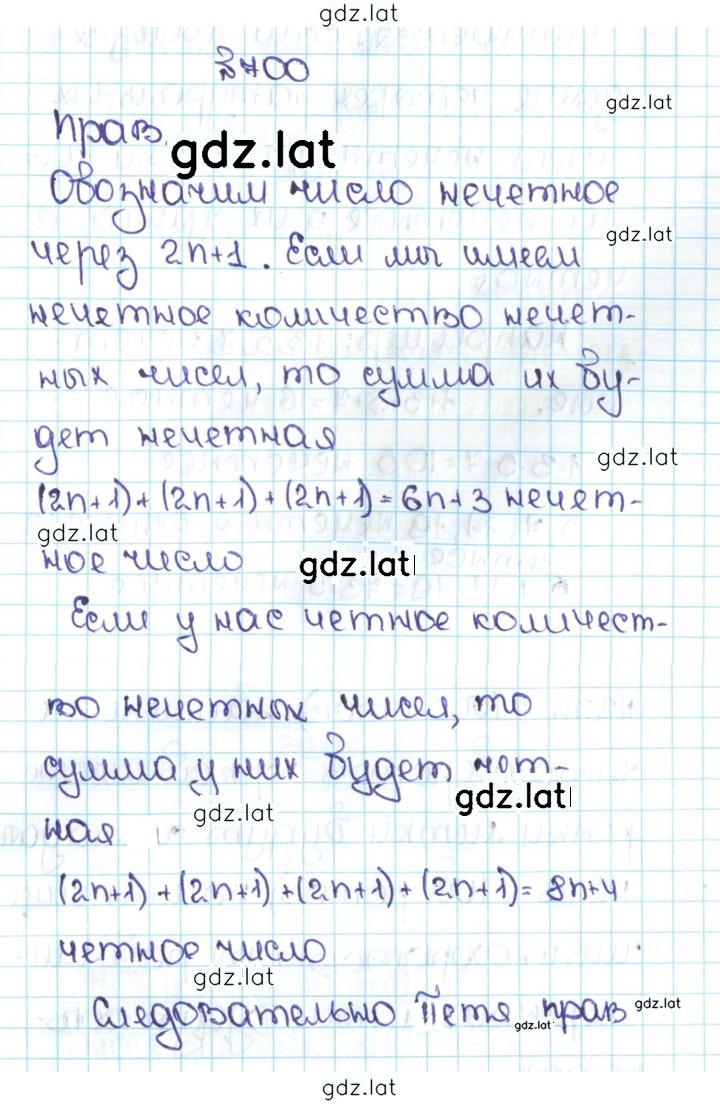 gdz.lat
№700
gdz.lat
прав
gdz.lat
Обозначим число нечетное
через 2n+1. Если мы имеем
gdz.lat
нечетное количество нечет-
ных чисел, то сумма их бу-
дет нечетная
gdz.lat
(2n+1)+(2n+1)+(2n+1)=6n+3 нечет-
gdz.lat
ное число
gdz.lat
Если у нас четное количест-
во нечетных чисел, то
сумма у них будет чот-
gdz.lat
gdz.lat
ная
(2n+1)+(2n+1)+(2n+1)+(2n+1)=8n+4
четное число
gdz.lat
Следовательно Петя прав
gdz.lat
gdz.lat
gdz.lat